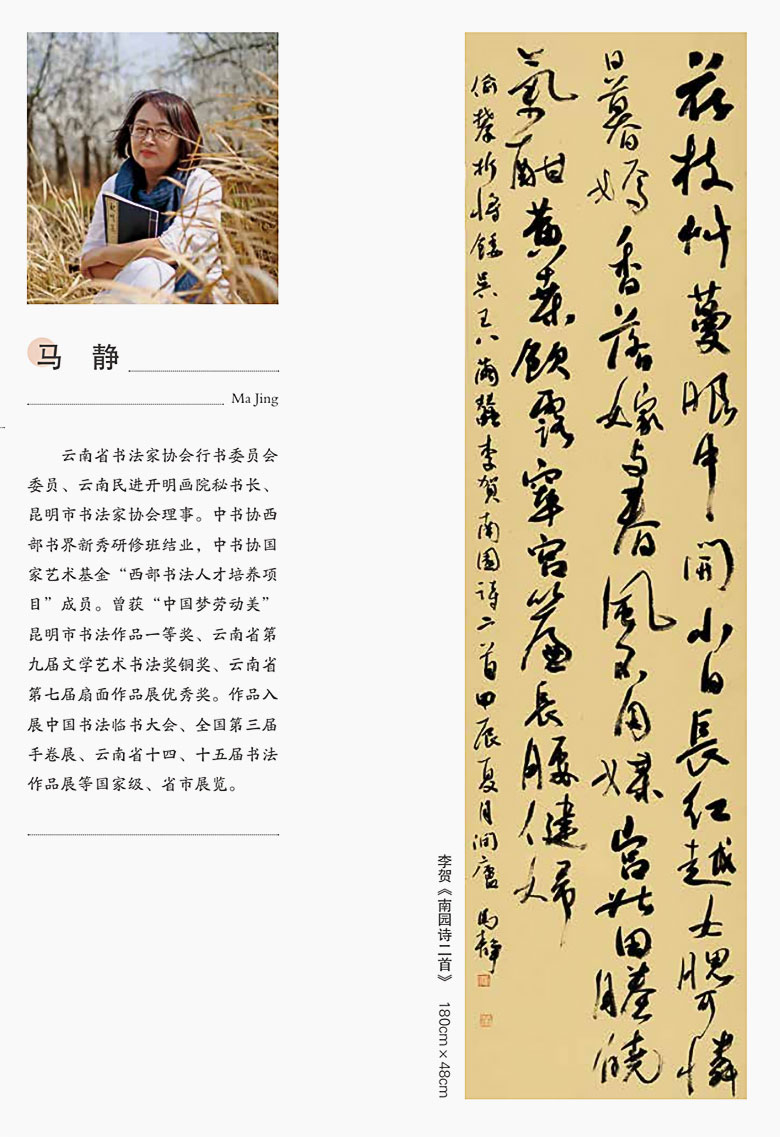 马 静
Ma Jing
云南省书法家协会行书委员会
委员、云南民进开明画院秘书长、
昆明市书法家协会理事。中书协西
部书界新秀研修班结业，中书协国
家艺术基金“西部书法人才培养项
目”成员。曾获“中国梦劳动美”
昆明市书法作品一等奖、云南省第
九届文学艺术书法奖铜奖、云南省
第七届扇面作品展优秀奖。作品入
展中国书法临书大会、全国第三届
手卷展、云南省十四、十五届书法
作品展等国家级、省市展览。
花枝艸蔓眼中開小白長紅越女腮可憐
日暮嫣香落嫁与春風不用媒宫北田塍曉
氣酣黄桑飲露窣宫簾長腰健婦
偷攀折将餧吴王八繭蠶李賀南園詩二首甲辰夏月润廬馬静
李贺《南园诗二首》 180cm×48cm